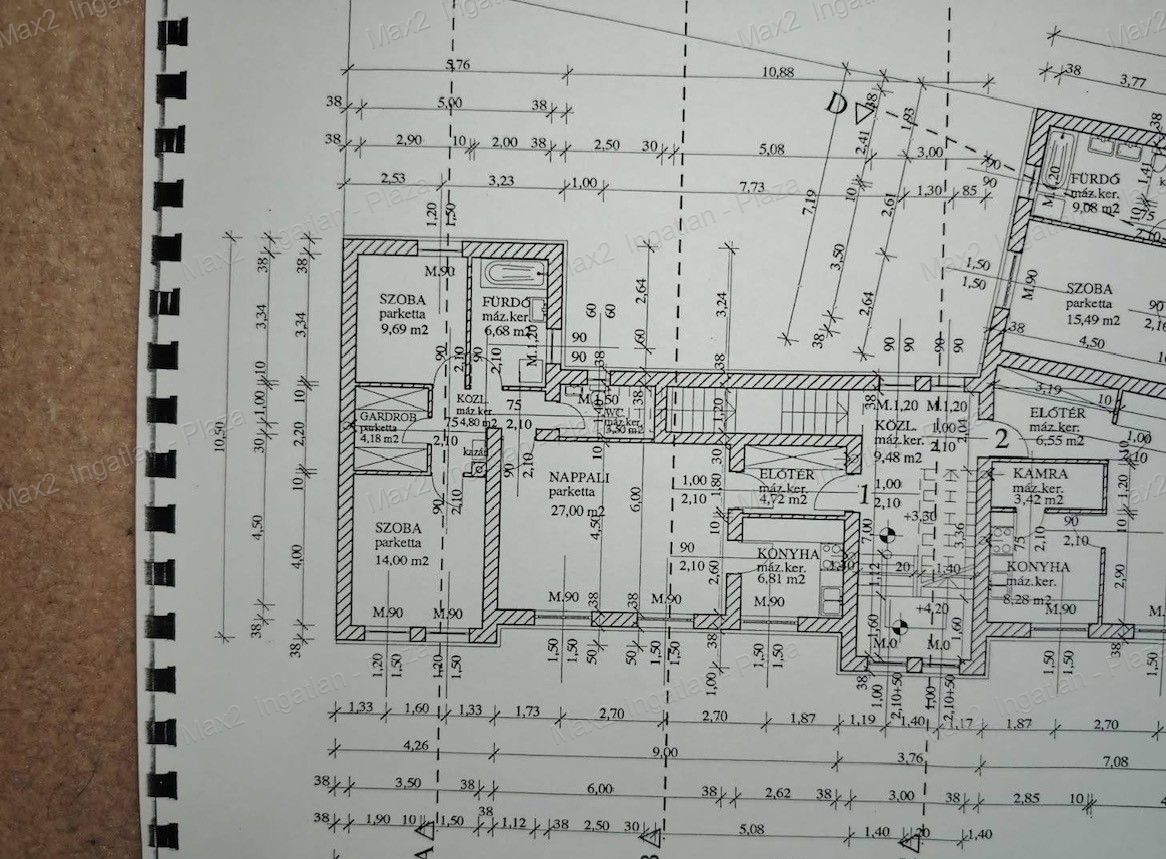 5,76
10,88
38
3,77
38
5,00
38
D
38
1,93
2,41
38
2,90
10
2,00
38
2,50
30
5,08
3,00
90
90
2,53
3,23
1,00
7,73
1,30
85
7,19
10
2,61
3,50
2,64
38
1,20
1,50
M.90
SZOBA
parketta
9,69 m2
FÜRDŐ
máz.ker.
6,68 m2
M.1,20
60
60
2,64
3,24
60
38
90
90
38
90
90
90
90
1,50
1,50
M.90
M.1,20
FÜRDŐ
máz.ker.
9,08 m2
1,41
10
SZOBA
parketta
15,49 m2
4,50
38
90
38
3,34
10
1,00
30
10,50
4,50
38
38
3,34
10
2,20
10
4,00
38
GARDRÓB
parketta
4,18 m2
KÖZL.
máz.ker.
4,80 m2
75
2,10
75
2,10
90
2,10
90
2,10
90
2,10
90
2,10
M.1,50
WC
máz.ker.
3,50 m2
kazán
NAPPALI
parketta
27,00 m2
4,50
6,00
10
38
1,20
30
1,80
10
2,60
1,00
2,10
ELŐTÉR
máz.ker.
4,72 m2
1
M.1,20
M.1,20
38
KÖZL.
máz.ker.
9,48 m2
1,00
2,10
1,00
2,10
2
3,19
10
ELŐTÉR
máz.ker.
6,55 m2
1,00
KAMRA
máz.ker.
3,42 m2
1,20
10
90
2,10
75
2,10
KONYHA
máz.ker.
8,28 m2
2,90
M.90
SZOBA
parketta
14,00 m2
M.90
M.90
M.90
38
38
M.90
90
2,10
KONYHA
máz.ker.
6,81 m2
M.90
7,00
+3,30
3,36
1,12
20
1,40
+4,20
1,60
1,60
M.0
M.0
1,20
1,50
1,20
1,50
1,50
1,50
50
50
1,50
1,50
38
1,00
1,50
1,50
38
1,00
2,10+50
1,00
2,10+50
1,50
1,50
38
1,50
1,33
1,60
1,33
1,73
2,70
2,70
1,87
1,19
1,40
1,17
1,87
2,70
4,26
9,00
3,76
7,08
38
3,50
38
6,00
38
2,62
38
3,00
38
2,85
10
38
1,90
10
1,50
38
1,12
38
2,50
30
5,08
1,40
20
1,40
A
B
Max2 Ingatlan - Plaza